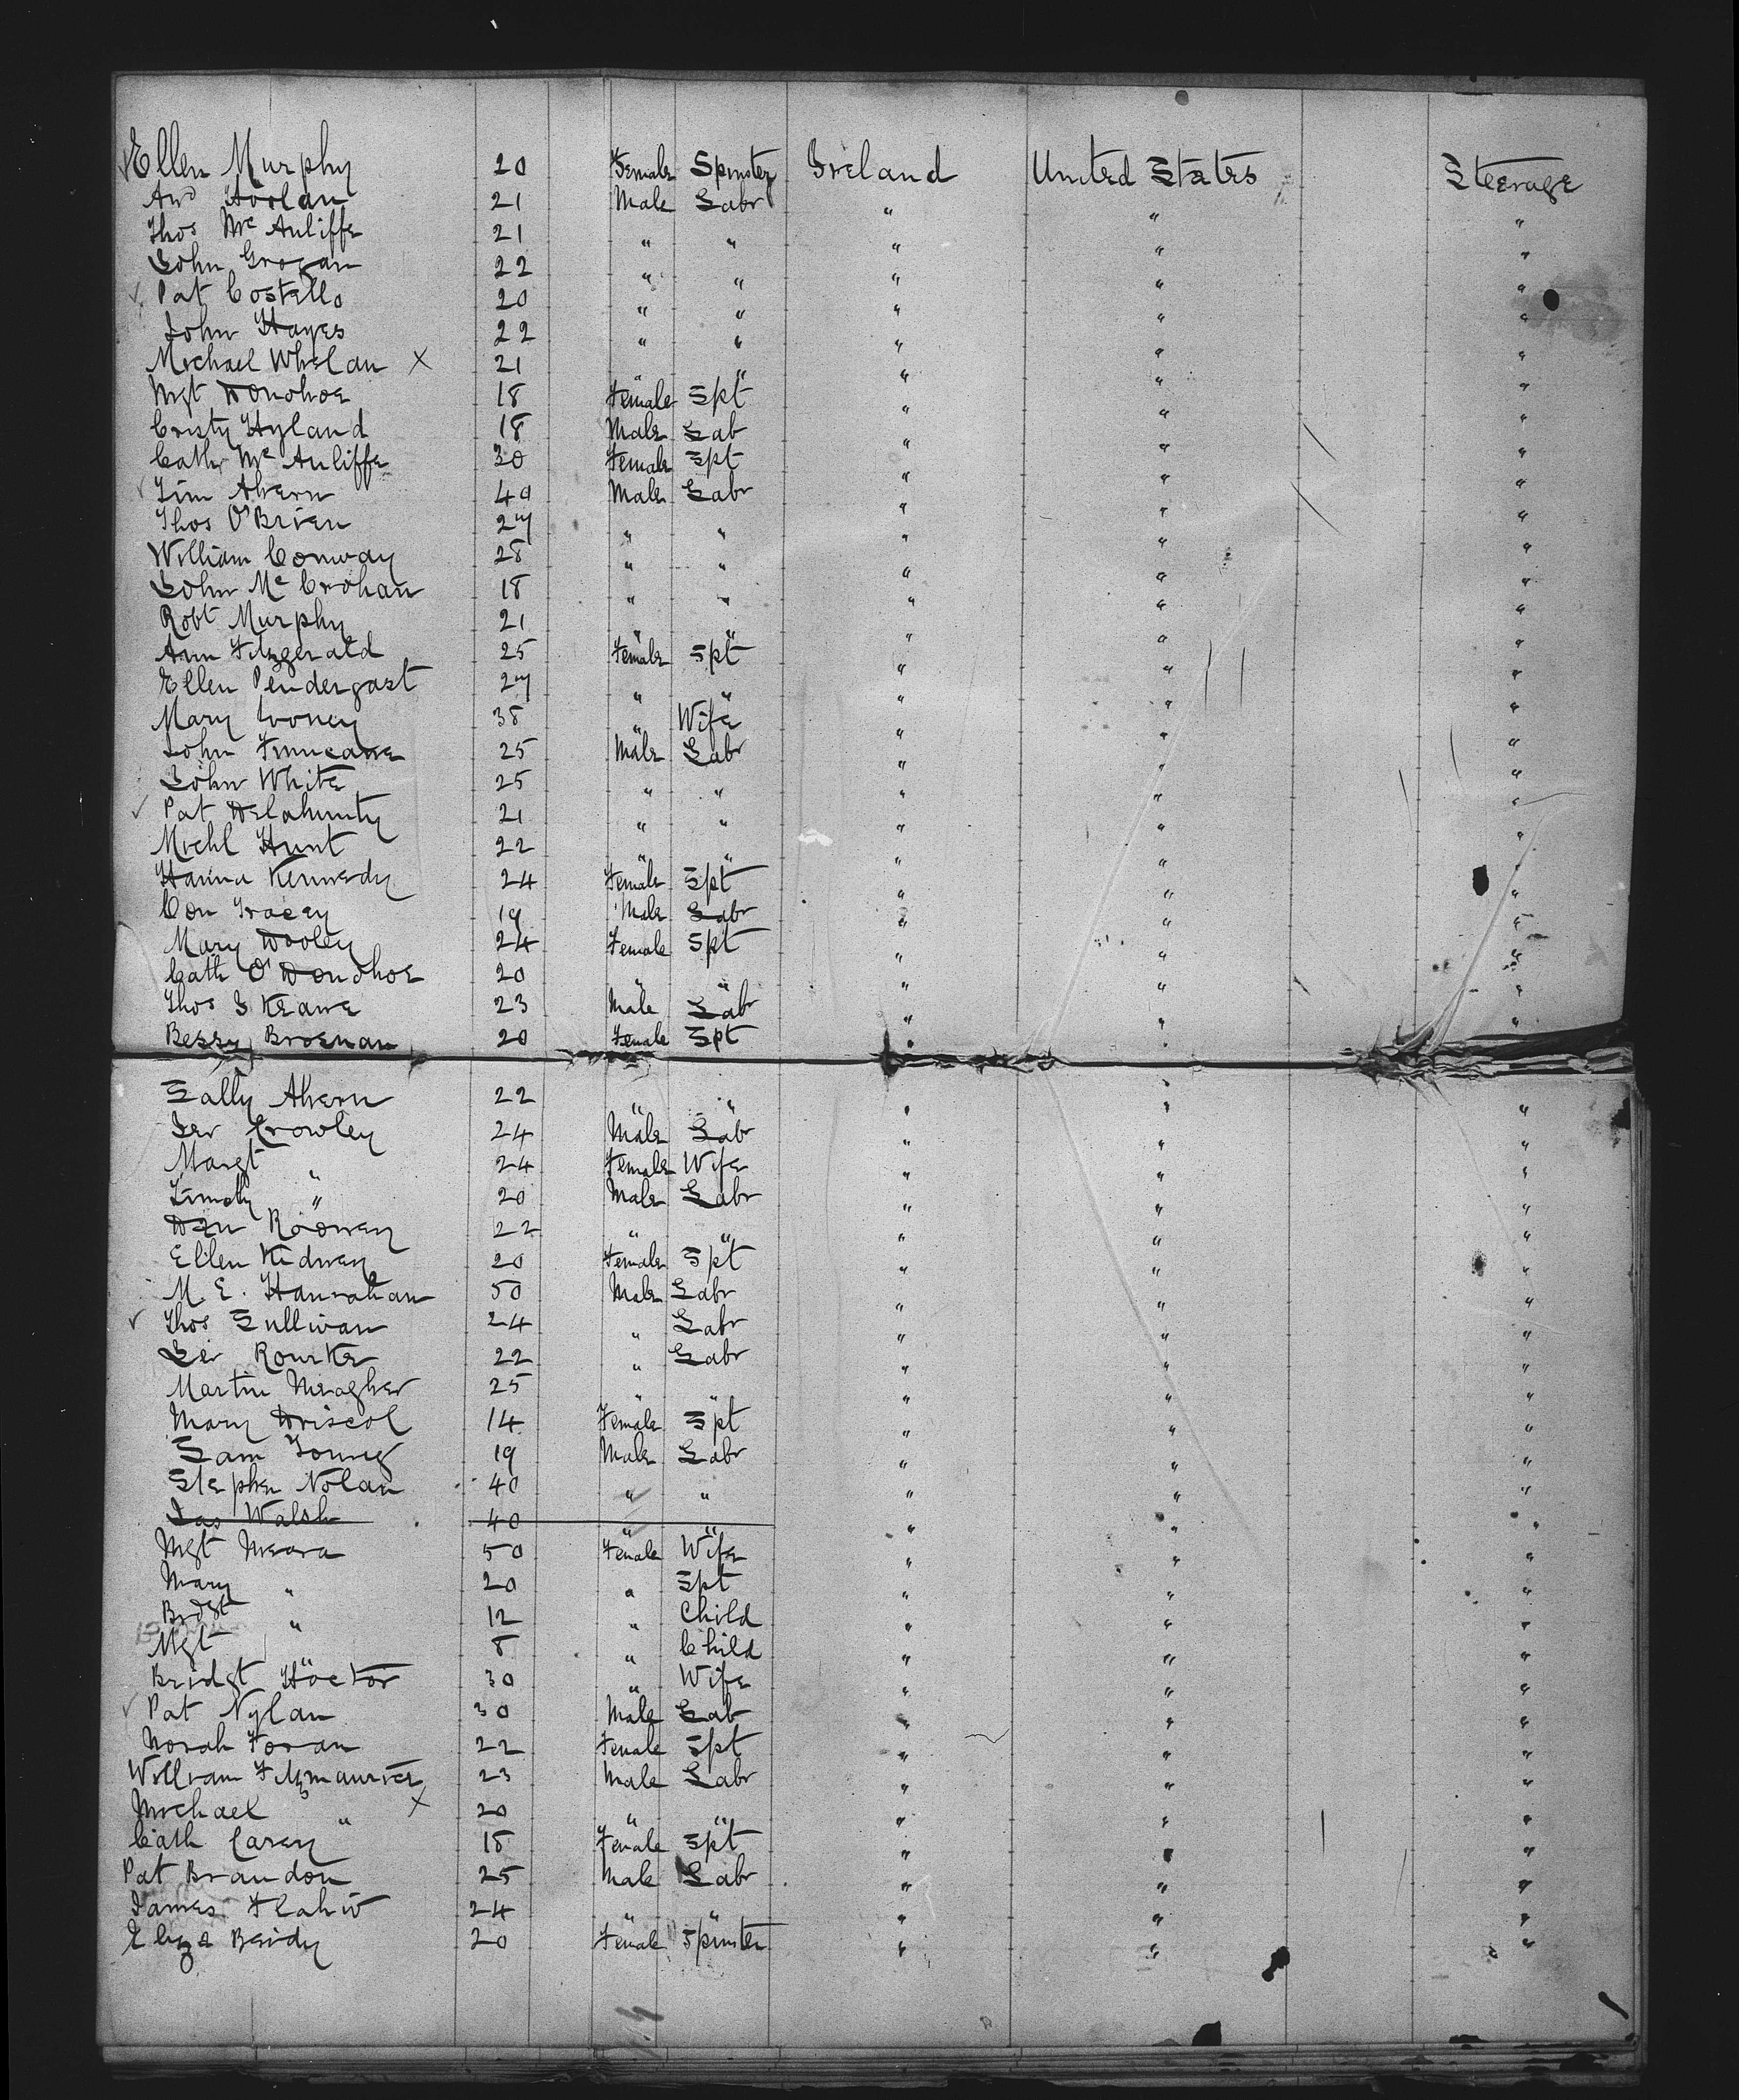 Ellen Murphy 20 Female Spinster Ireland United States Steerage
And Hoolan 21 Male Labr " " "
Thos Mc Auliffe 21 " " " " "
John Grogan 22 " " " " "
Pat Costello 20 " " " " "
John Hayes 22 " " " " "
Michael Whelan X 21 " " " " "
Mgt Donohoe 18 Female Spt " " "
Cristy Hyland 18 Male Lab " " "
Cathr Mc Auliffe 30 Female Spt " " "
Tim Ahern 40 Male Labr " " "
Thos O'Brien 27 " " " " "
William Conway 28 " " " " "
John Mc Crohan 18 " " " " "
Robt Murphy 21 " " " " "
Ann Fitzgerald 25 Female Spt " " "
Ellen Pendergast 27 " " " " "
Mary Cooney 38 " Wife " " "
John Finucane 25 Male Labr " " "
John White 25 " " " " "
Pat Delahunty 21 " " " " "
Michl Hunt 22 " " " " "
Hanna Kennedy 24 Female Spt " " "
Con Tracey 19 Male Labr " " "
Mary Dooley 24 Female Spt " " "
Cath O'Donohoe 20 " " " " "
Thos J Keane 23 Male Labr " " "
Bessy Brosnan 20 Female Spt " "
Sally Ahern 22 " " " " "
Jer Crowley 24 Male Labr " " "
Margt " 24 Female Wife " " "
Timothy " 20 Male Labr " " "
Dan Rooney 22 " " " " "
Ellen Kidney 20 Female Spt " " "
M. E. Hanrahan 50 Male Labr " " "
Thos Sullivan 24 " Labr " " "
Jer Rourke 22 " Labr " " "
Martin Meagher 25 " " " " "
Mary Driscol 14 Female Spt " " "
Sam Young 19 Male Labr " " "
Stephen Nolan 40 " " " " "
Jas Walsh 40 " " " " "
Mgt Meara 50 Female Wife " " "
Mary " 20 " Spt " " "
Bridgt " 12 " Child " " "
Mgt " 8 " Child " " "
Bridgt Hoctor 30 " Wife " " "
Pat Nylan 30 Male Lab " " "
Norah Foran 22 Female Spt " " "
William Fitzmaurice 23 Male Labr " " "
Michael " X 20 " " " " "
Cath Carey 18 Female Spt " " "
Pat Brandon 25 Male Labr " " "
James Flahiv 24 " " " " "
Eliza 20 Female Spinster " " "